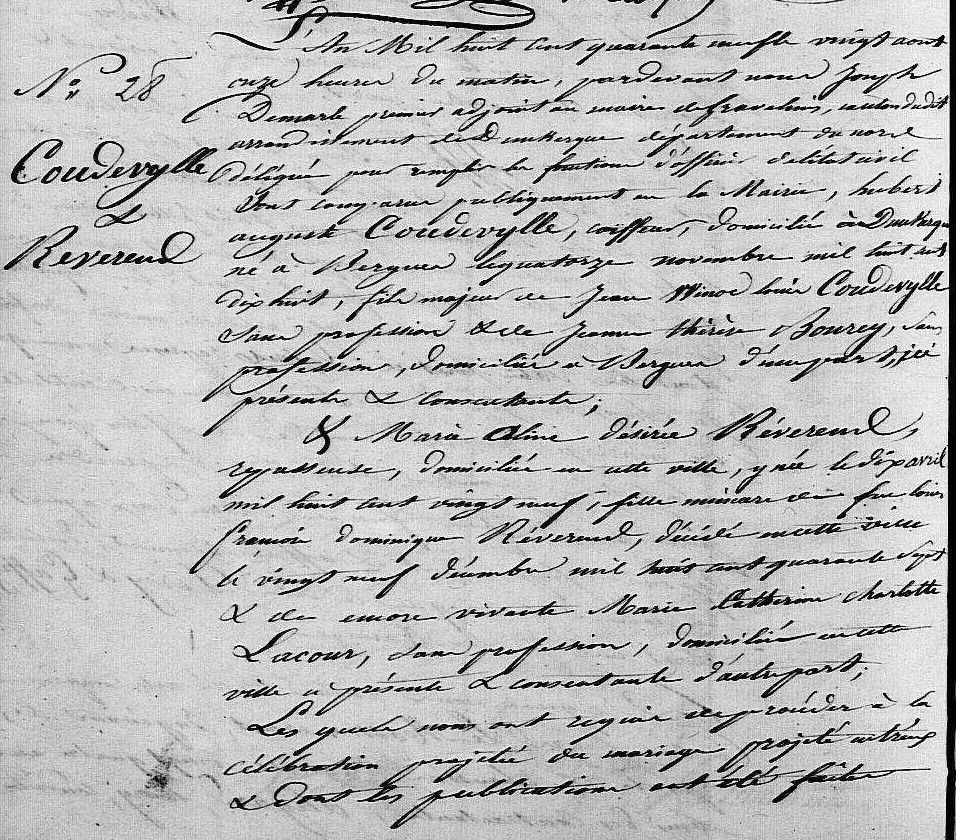 N.º 28
Coudevylle
&
Reverend
L'An Mil huit cent quarante neuf le vingt aout
onze heures du matin, pardevant nous Joseph
Demarle premier adjoint au maire de Gravelines, canton dudit
arrondissement de Dunkerque département du nord
délégué pour remplir les fonctions d'officier d'état civil
Sont comparus publiquement en la Mairie, hubert
auguste Coudevylle, coiffeur, domicilié à Dunkerque
né à Bergues le quatorze novembre mil huit cent
dix huit, fils majeur de Jean Winoc louis Coudevylle
sans profession & de Jeanne thérèse Bourey, sans
profession, domiciliés à Bergues d'une part, ici
présents & consentants;
& Marie Aline désirée Révérend,
repasseuse, domiciliée en cette ville, y née le dix avril
mil huit cent vingt neuf, fille mineure de feu louis
françois dominique Révérend, décédé en cette ville
le vingt neuf décembre mil huit cent quarante sept
& de encore vivante Marie Catherine charlotte
Lacour, sans profession, domiciliée en cette
ville ci présente & consentante d'autre part;
Les quels nous ont requis de procéder à la
célébration projetée du mariage projeté entr'eux
& dont les publications ont été faites